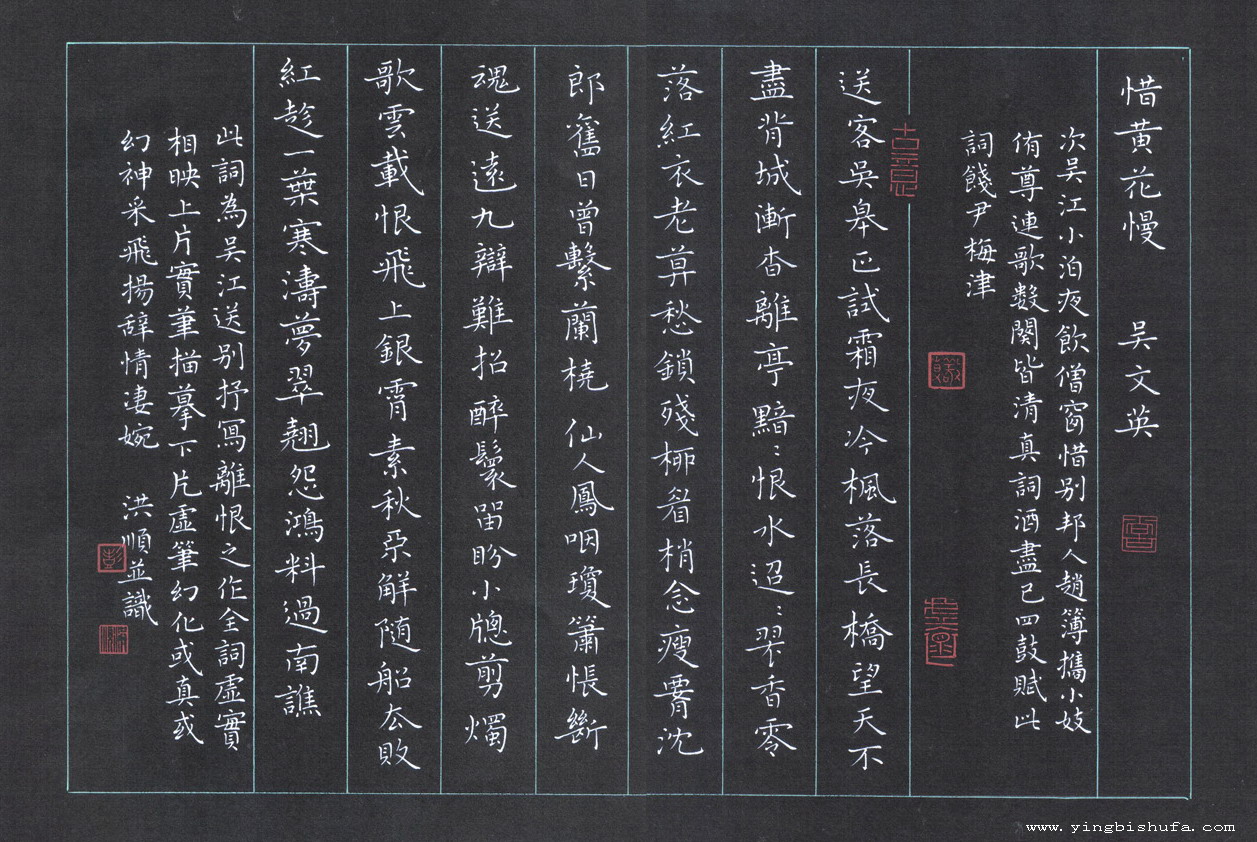 惜黃花慢 吳文英
次吳江小泊夜飲僧窗惜別邦人趙簿攜小妓
侑尊連歌數闋皆清真詞酒盡已四鼓賦此
詞餞尹梅津
送客吳皋正試霜夜冷楓落長橋望天不
盡背城漸杳離亭黯：恨水迢：翠香零
落紅衣老莫愁鎖殘柳眉梢念瘦腰沈
郎舊日曾繫蘭橈 仙人鳳咽瓊簫悵斷
魂送遠九辯難招醉鬟留盼小窗剪燭
歌雲載恨飛上銀霄素秋不解隨船去敗
紅趁一葉寒濤夢翠翹怨鴻料過南譙
此詞為吳江送別抒寫離恨之作全詞虛實
相映上片實筆描摹下片虛筆幻化或真或
幻神采飛揚辭情淒婉 洪順並識
www.yingbishufa.com